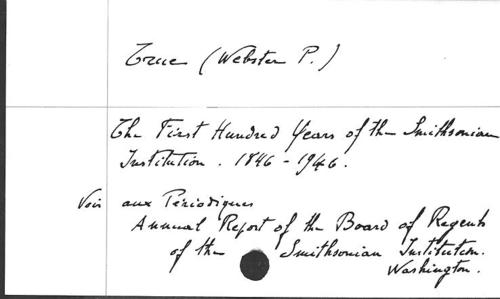 True (Webster P.)
The First Hundred Years of the Smithsonian
Institution. 1846-1946.
Voir aux Périodiques
Annual Report of the Board of Regents
of the Smithsonian Institution.
Washington.